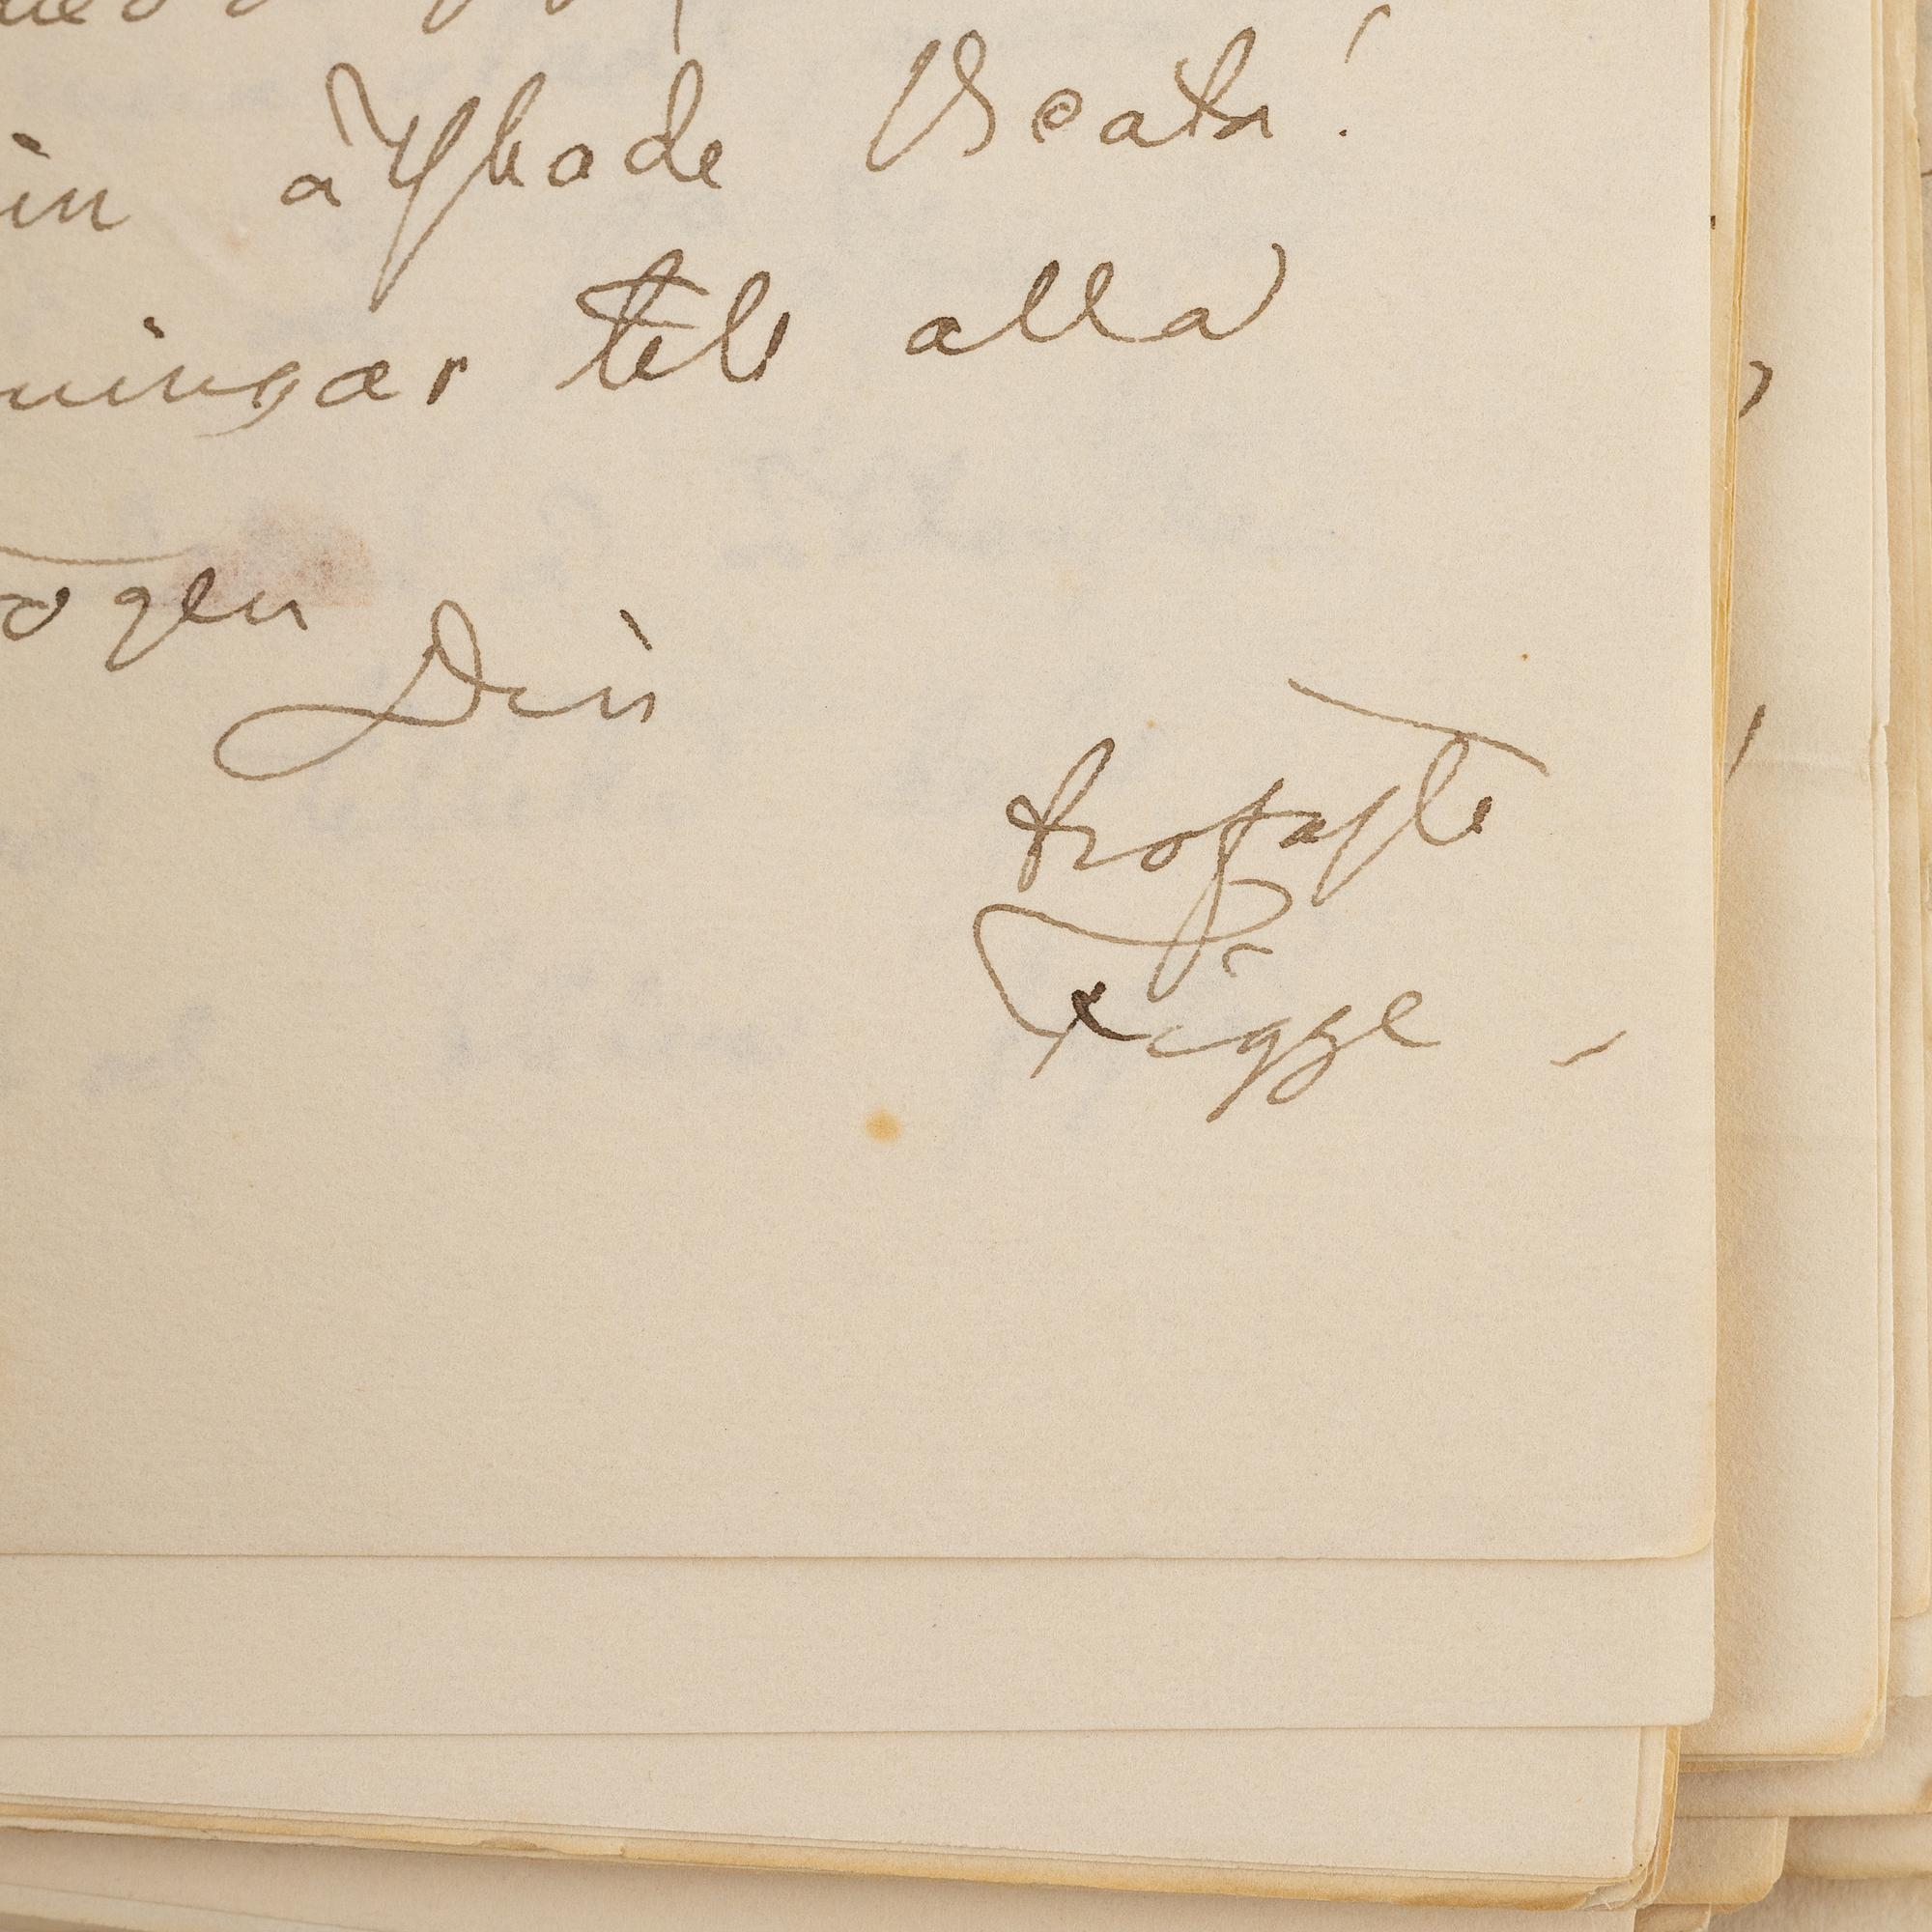 in älskade Beata!
ningar till alla
ogen
Din
trofaste
Figge